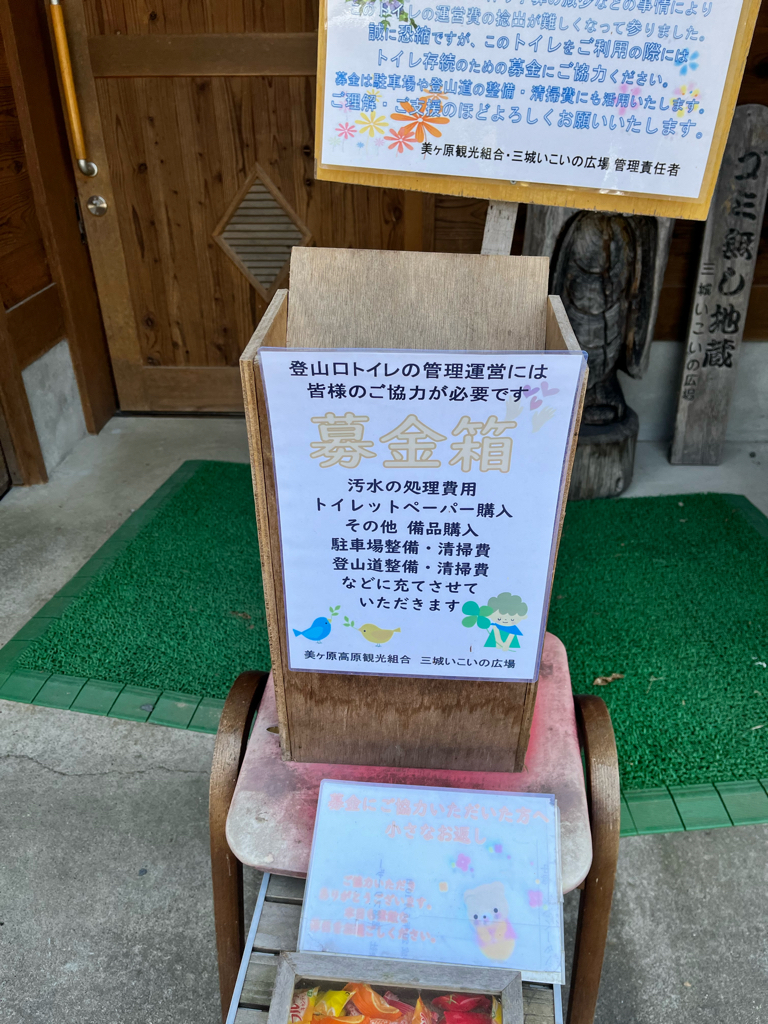 このトイレの運営費の捻出が難しくなって参りました。
誠に恐縮ですが、このトイレをご利用の際には
トイレ存続のための募金にご協力ください。
募金は駐車場や登山道の整備・清掃費にも活用いたします。
ご理解・ご支援のほどよろしくお願いいたします。
美ヶ原観光組合・三城いこいの広場 管理責任者
ゴミ無し地蔵
三城いこいの広場
登山口トイレの管理運営には
皆様のご協力が必要です
募金箱
汚水の処理費用
トイレットペーパー購入
その他 備品購入
駐車場整備・清掃費
登山道整備・清掃費
などに充てさせて
いただきます
美ヶ原高原観光組合 三城いこいの広場
募金にご協力いただいた方へ
小さなお返し
ご協力いただき
ありがとうございます。